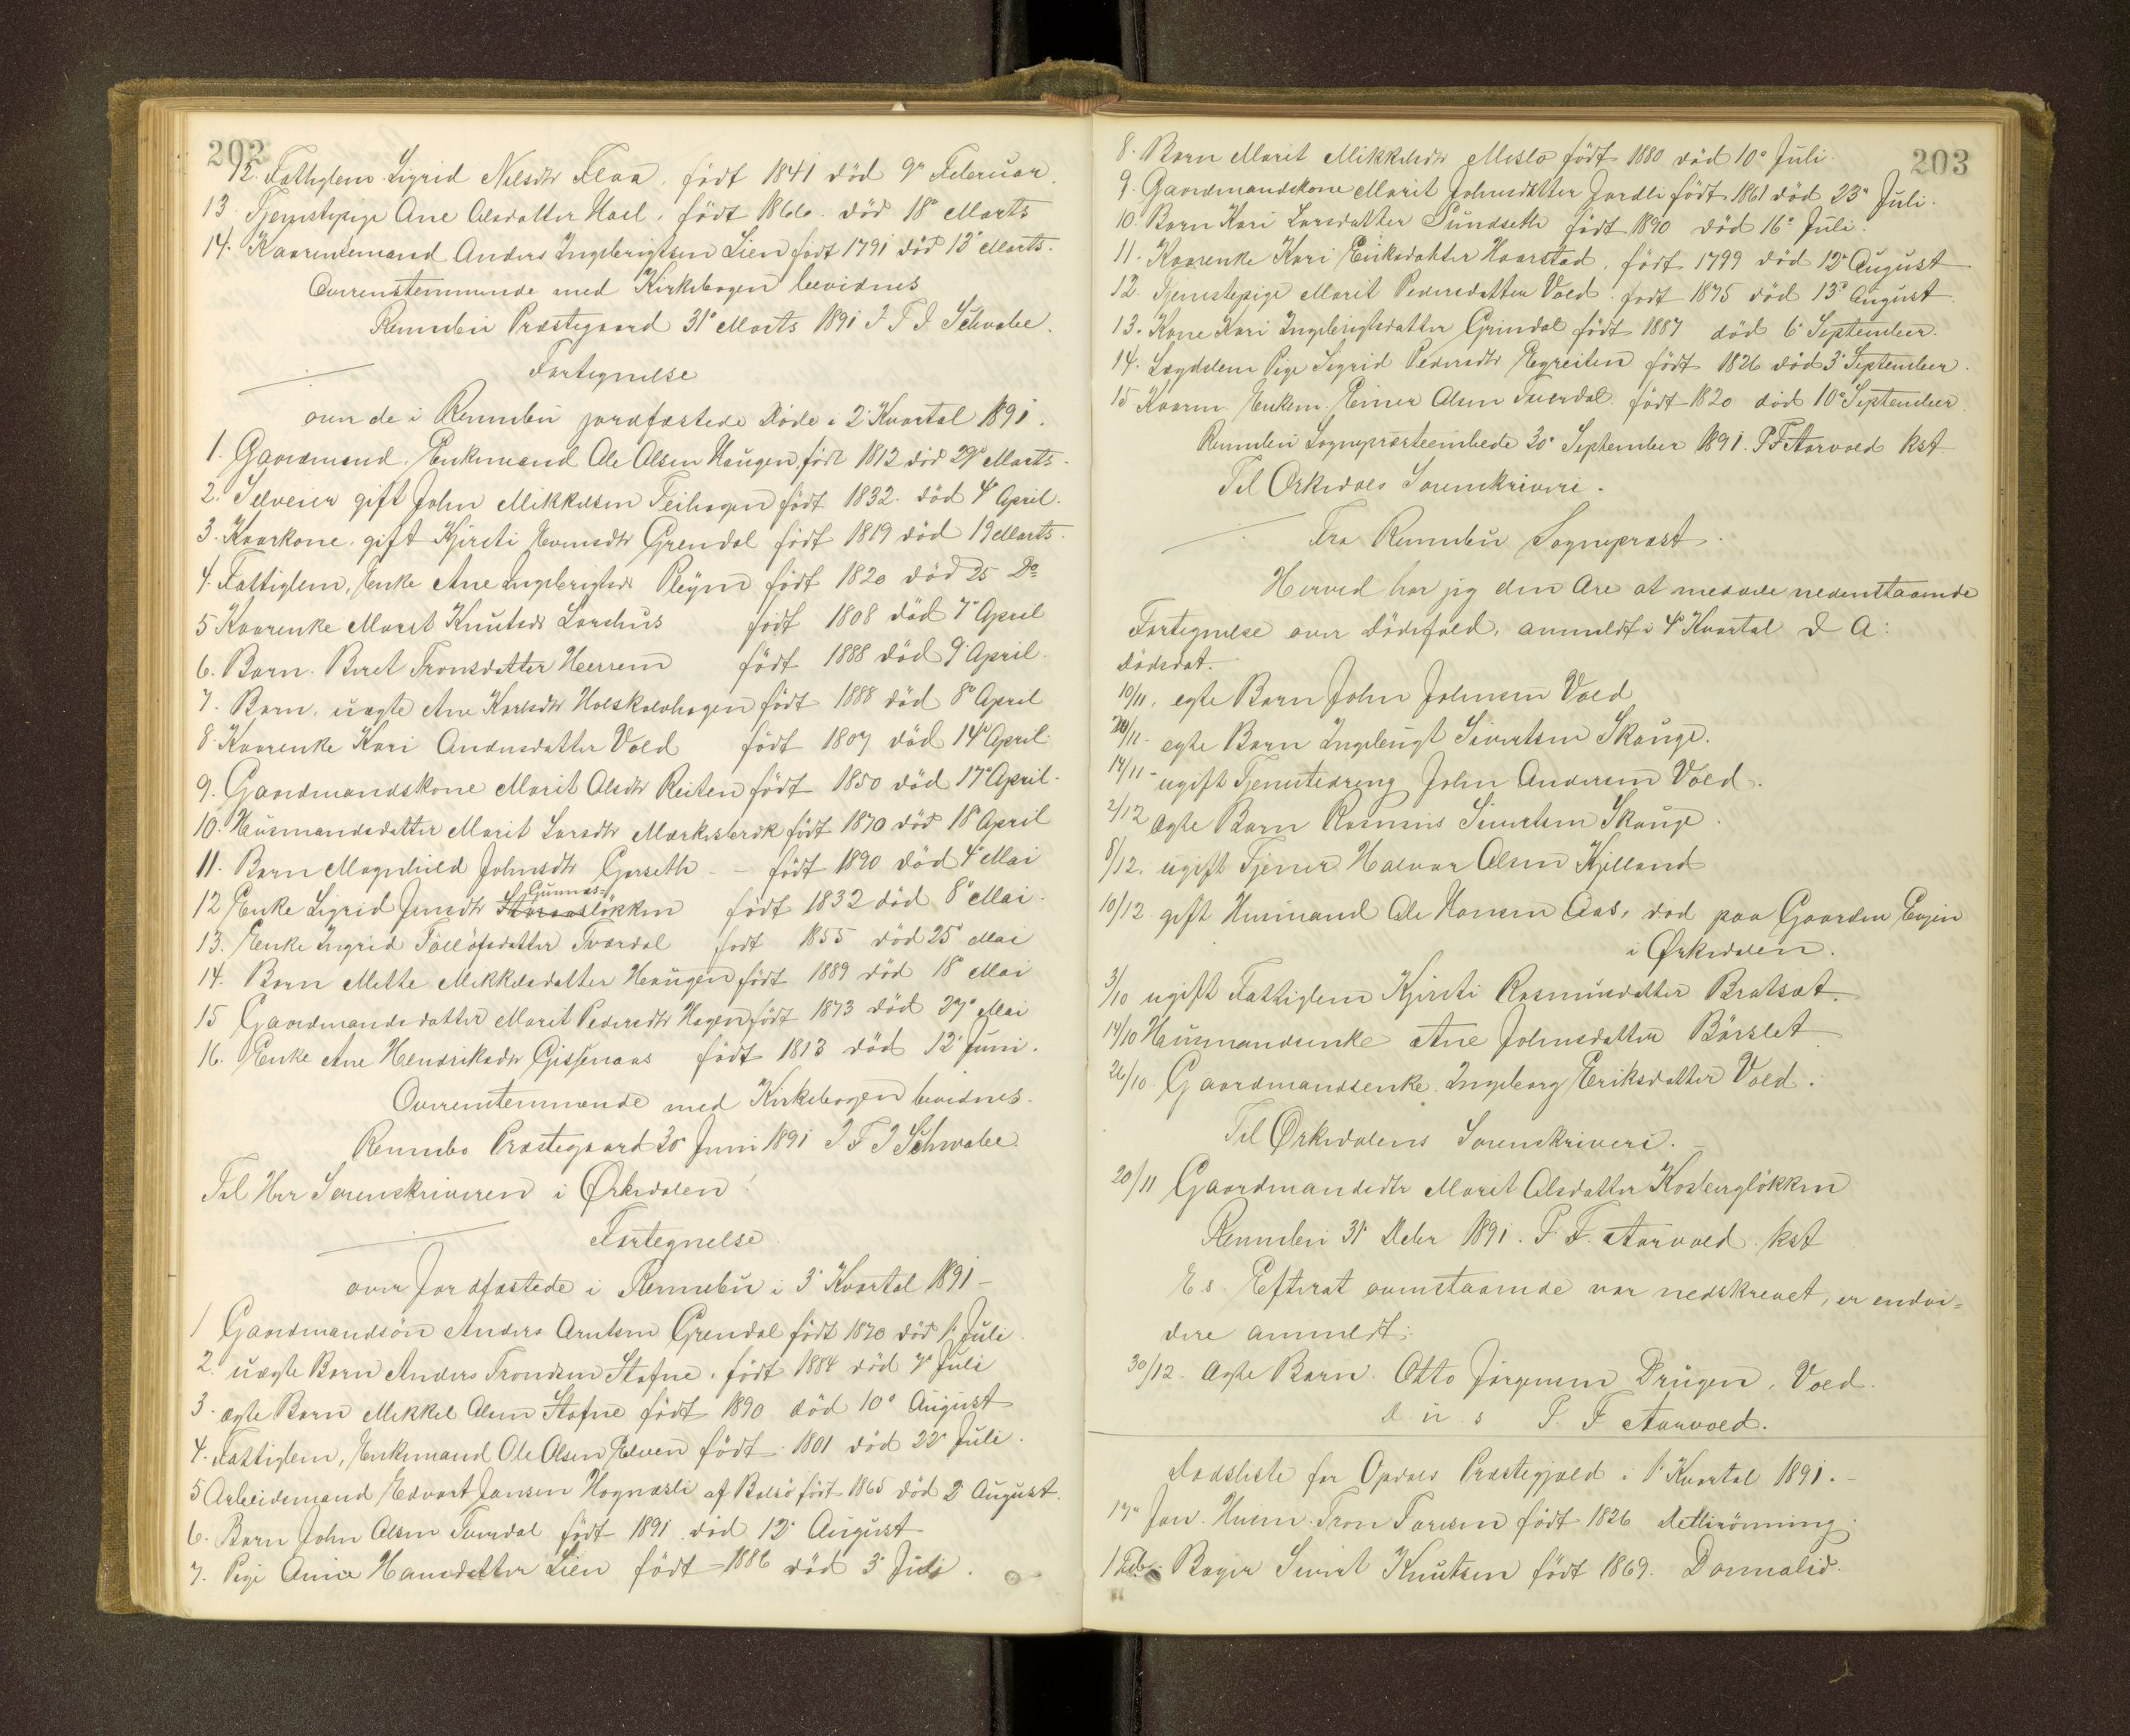 202
12. Fattiglem Sigrid Nilsdtr Flaa, födt 1841 död 9° Februar.
13 Tjenestepige Ane Olsdatter Hoel, födt 1866. död 18° Marts
14. Kaarenkemand Anders Ingebrigtsen Lien födt 1791 död 13° Marts.
Overenstemmende med Kirkebogen bevidnes
Rennebu Præstegaard 31° Marts 1891 J F J Schwabe.
Fortegnelse
over de i Rennebu jordfæstede Döde i 2° Kvartal 1891.
1. Gaardmand, Enkemand Ole Olsen Haugen, födt 1812 död 29° Marts.
2. Selveier gift John Mikkelsen Feihagen födt 1832. död 4° April.
3. Kaarkone, gift Kjirsti Evensdtr Grendal födt 1819 död 19 Marts.
4. Fattiglem, Enke Ane Ingebrigtsdr Pleym födt 1820 död 25 Do
5 Kaarenke Marit Knutsdr Larshus födt 1808 död 7° April
6. Barn. Beret Tronsdatter Heerem födt 1888 död 9° April.
7. Barn. uægte Ane Karlsdtr Holskolvhagen födt 1888 död 8° April
8. Kaarenke Kari Andersdatter Vold födt 1807 död 14° April.
9. Gaardmandskone Marit Olsdtr Reiten födt 1850 död 17° April.
10. Husmandsdatter Marit Larsdtr Mærkesbrok födt 1870 död 18° April
11. Barn Magnhild Johnsdtr Gorseth – – födt 1890 död 4° Mai
Gunnes=
12 Enke Sigrid Jensdtr lökken födt 1832 död 8° Mai.
13. Enke Ingrid Tollöfsdatter Tværdal födt 1855 död 25° Mai
14. Barn Mette Mikkelsdatter Haugen födt 1889 död 18° Mai
15 Gaardmandsdatter Marit Pedersdtr Hagen födt 1873 död 27° Mai
16. Enke Ane Hendriksdtr Gissenaas födt 1813 död 12° Juni.
Overenstemmende med Kirkebogen bevidnes.
Rennebo Præstegaard 30° Juni 1891 J F J Schwabe.
Til Hrr Sorenskriveren i Ørkedalen!
Fortegnelse
over Jordfæstede i Rennebu i 3° Kvartal 1891 –
1 Gaardmandsön Anders Arntsen Grendal födt 1870 död 1. Juli
2. uægte Barn Anders Trondsen Stafne, födt 1884 död 7° Juli
3. ægte Barn Mikkel Olsen Stafne födt 1890 död 10° August
4. Fattiglem, Enkemand Ole Olsen Elven födt 1801 död 22° Juli.
5 Arbeidsmand Edvart Jansen Hognæsli af Bolsö födt 1865 död 2° August.
6. Barn John Olsen Tverdal födt 1891 död 12° August
7. Pige Anne Hansdatter Lien födt 1886 död 3° Juli.
203
8. Barn Marit Mikkelsdtr Meslo födt 1880 död 10° Juli.
9. Gaardmandskone Marit Johnsdatter Jordli födt 1861 död 23° Juli.
10. Barn Kari Larsdatter Sundseth födt 1890 död 16° Juli.
11. Kaarenke Kari Eriksdatter Haarstad, födt 1799 död 12° August
12. Tjenestepige Marit Pedersdatter Vold födt 1875 död 13° August.
13. Kone Kari Ingebrigtsdatter Grindal födt 1887 död 6° September.
14. Lægdslem Pige Sigrid Pedersdtr Egreiten födt 1826 död 3° September.
15 Kaarm. Enkem. Einer Olsen Tverdal födt 1820 död 10° September.
Rennebu Sognepræsteembede 30° September 1891. P F Aarvold kst
Til Orkedals Sorenskriveri.
Fra Rennebu Sognepræst.
Herved har jeg den Ære at meddele nedenstaaende
Fortegnelse over Dödsfald, anmeldt i 4° Kvartal d A:
Dödsdat.
10/11. egte Barn John Johnsen Vold
20/11 – egte Barn Ingebrigt Sivertsen Skauge.
14/11 – ugift Tjenestedreng John Andersen Vold.
2/12 ægte Barn Rasmus Sivertsen Skauge.
8/12. ugift Tjener Halvor Olsen Kjelland
10/12 gift Husmand Ole Hansen Aas, död paa Gaarden Evjen
i Ørkedalen.
3/10 ugift Fattiglem Kjirsti Rasmusdatter Bratsæt.
14/10 Husmandsenke Ane Johnsdatter Börslet
26/10. Gaardmandsenke. Ingeborg Eriksdatter Vold.
Til Ørkedalens Sorenskriveri. –
20/11 Gaardmandsdtr Marit Olsdatter Kosberglökken
Rennebu 31° Debr 1891. P. F. Aarvold. kst
E.s. Efterat ovenstaaende var nedskrevet, er endvi=
dere anmeldt:
30/12. Ægte Barn. Otto Jörgensen Drugen, Vold.
d. u. s P. F Aarvold.
Dödsliste for Opdals Præstegjæld i 1° Kvartal 1891. –
17° Jan. Husm. Tron Toresen födt 1826 Detlirönning.
1 Feb. Bager Sivert Knutsen födt 1869. Donnalid.